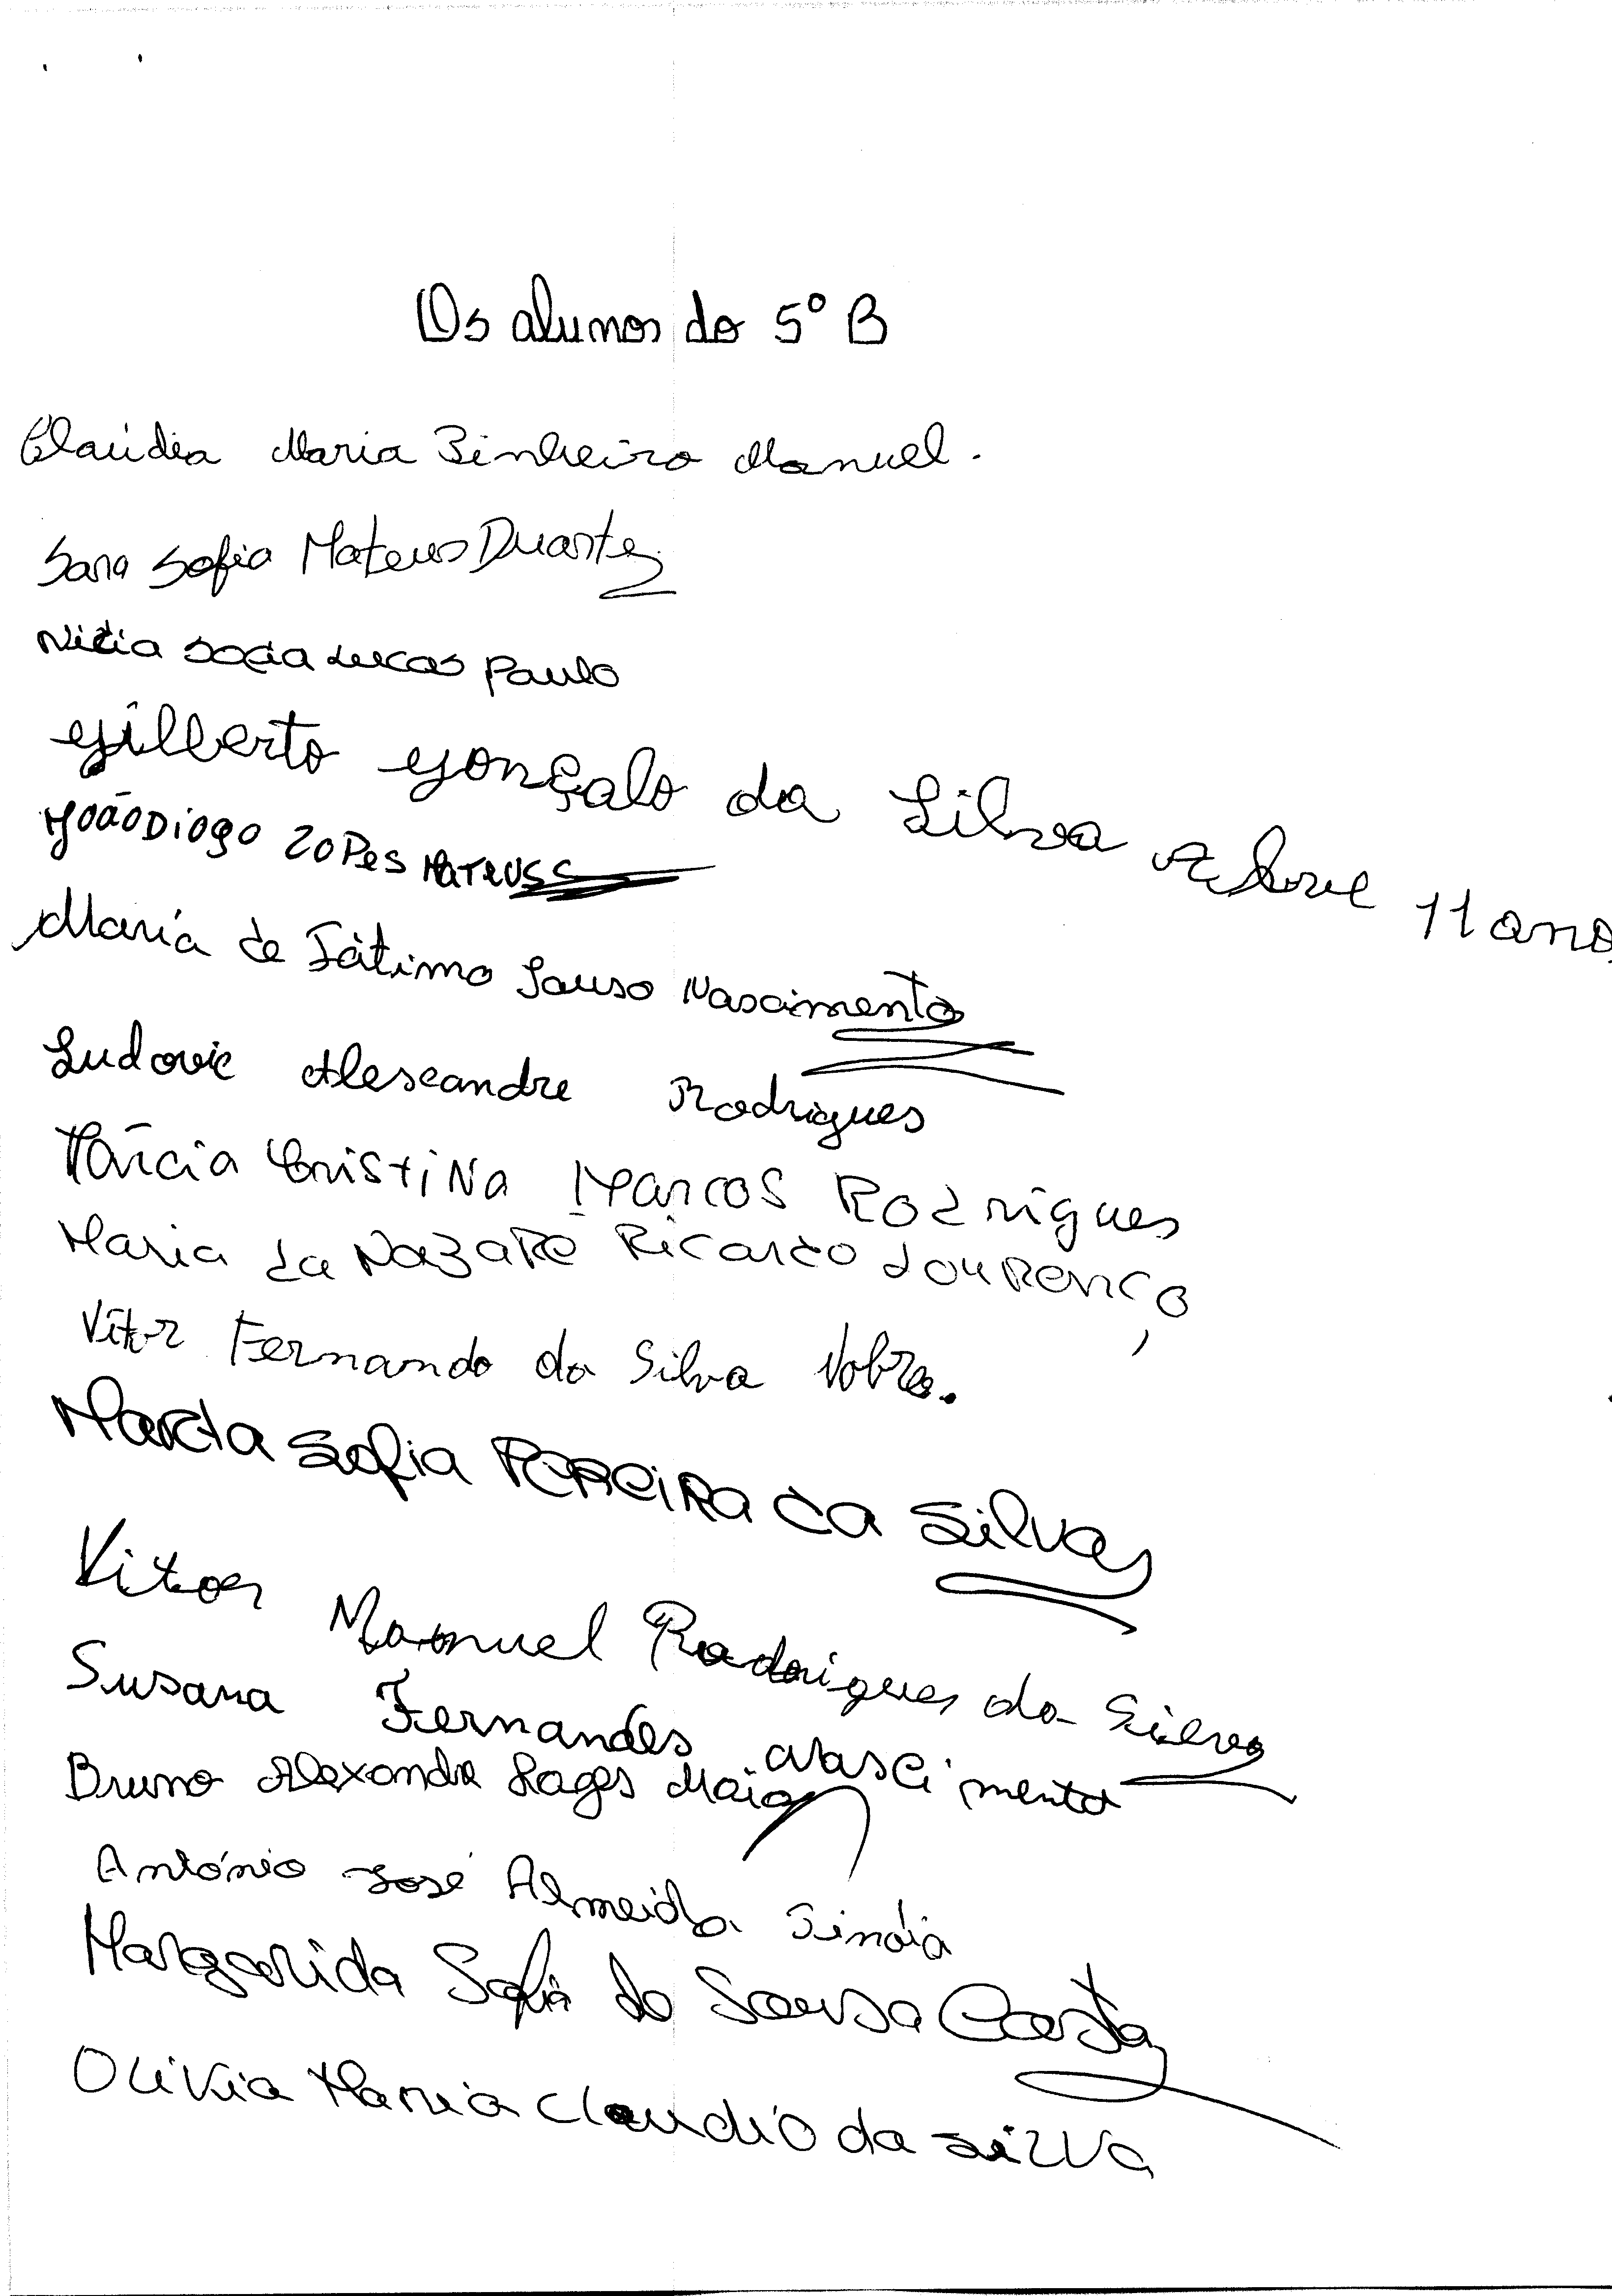 Os alunos do 5º B
Claúdia Maria Pinheiro Manuel.
Sara Sofia Mateus Duarte
Nídia Sofia Lucas Paulo
Gilberto Gonçalo da Silva 11 ano
João Diogo Lopes Mateus
Maria de Fátima Sousa Nascimento
Ludovic Alescandre Rodrigues
Márcia Cristina Marcos Rodrigues
Maria da Nazaré Ricardo Lourenço
Vitor Fernando da Silva Nobre.
Marcia Sofia Pereira da Silva
Vitor Manuel Rodrigues da Silva
Susana Fernandes Nascimento
Bruno Alexandre Lages Maia
António José Almeida
Margarida Sofia de Sousa Costa
Olivia Maria Claudio da Silva